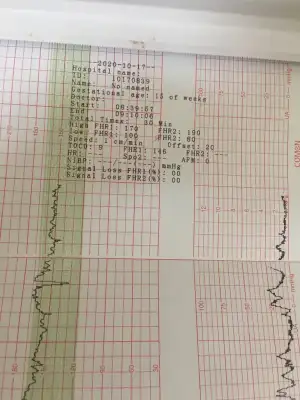 --2020-10-17--
Hospital name:
ID: 10170839
Name: No named
Gestational age: 15 of weeks
Doctor:
Start: 08:39:57
End: 09:10:06
Total Times: 30 Min
High FHR1: 170 FHR2: 190
low: FHR1: 100 FHR2: 60
Speed: 1 cm/min Offset: 20
TOCO: 9 FHR1: 146 FHR2: ---
HR: --- Spo2: --- AFM: 0
NIBP: ---/---(---) mmHg
Signal Loss FHR1(%): 00
Signal Loss FHR2(%): 00